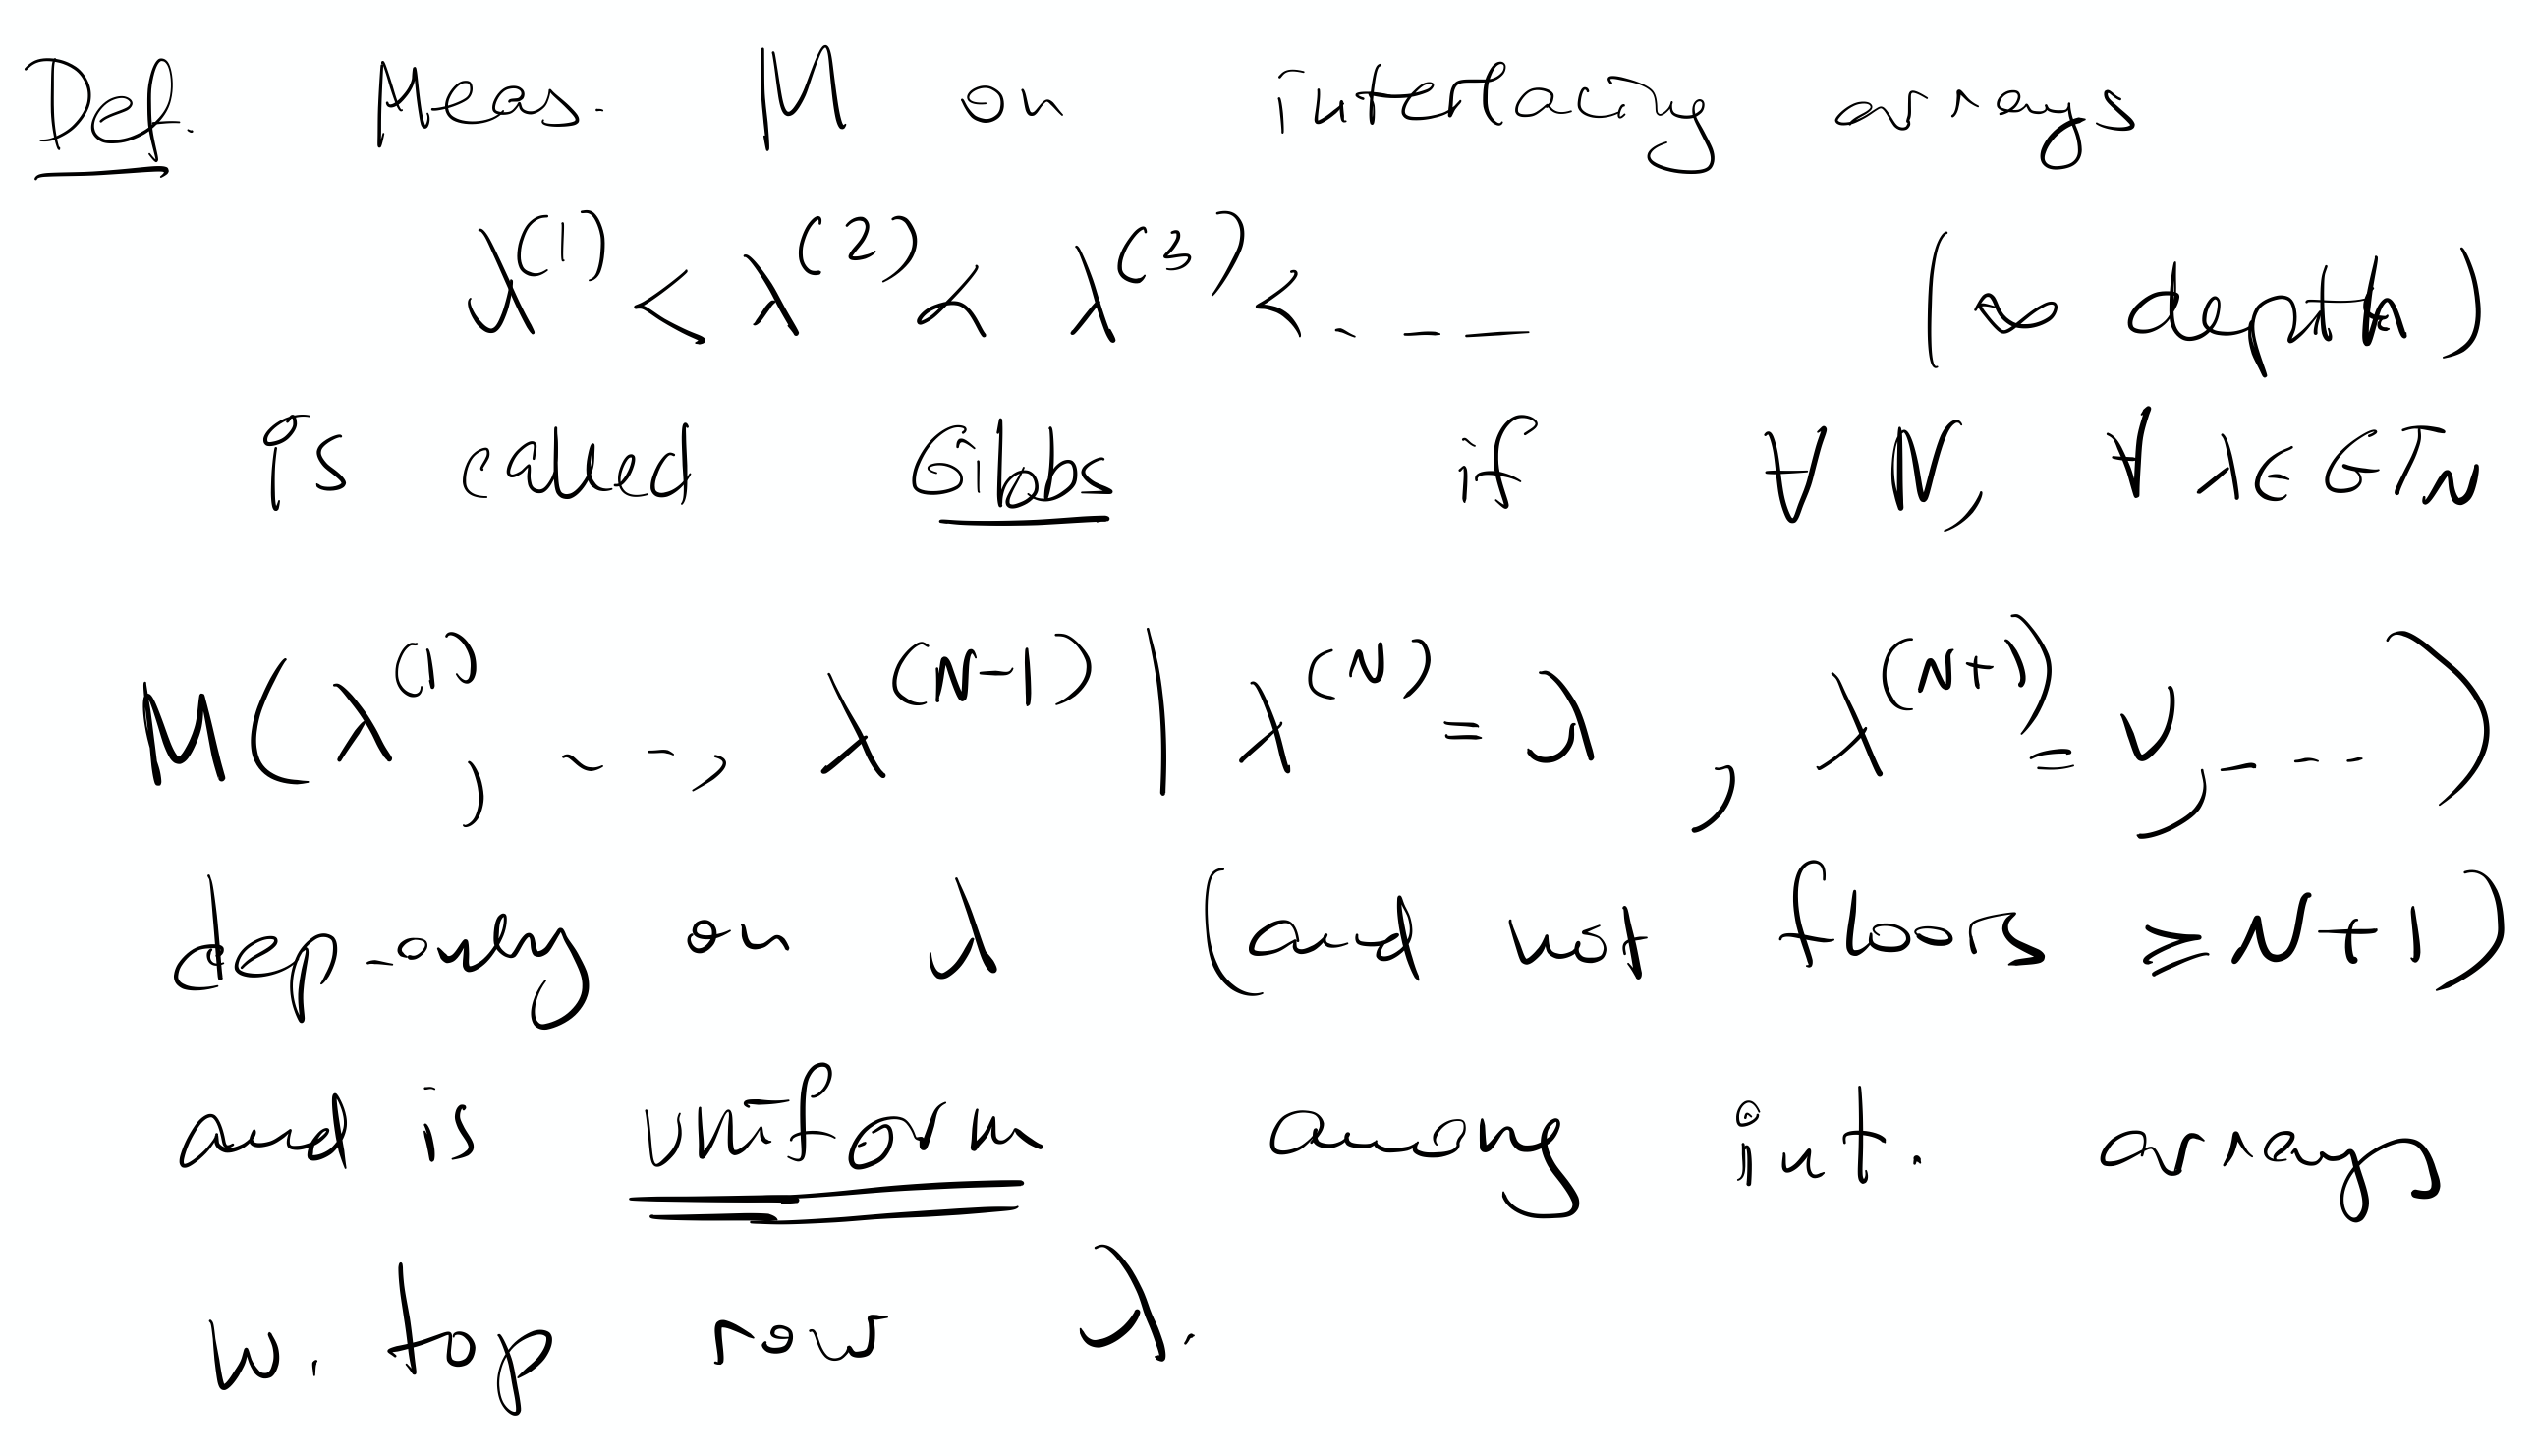 Def. Meas. M on interlacing arrays
λ^(1) < λ^(2) < λ^(3) < . - - - (∞ depth)
is called Gibbs if ∀ N, ∀ λ ∈ GT_N
M(λ^(1), ---, λ^(N-1) | λ^(N) = λ, λ^(N+1) = ν, ----)
dep. only on λ (and not floors ≥ N+1)
and is uniform among int. arrays
w. top row λ.